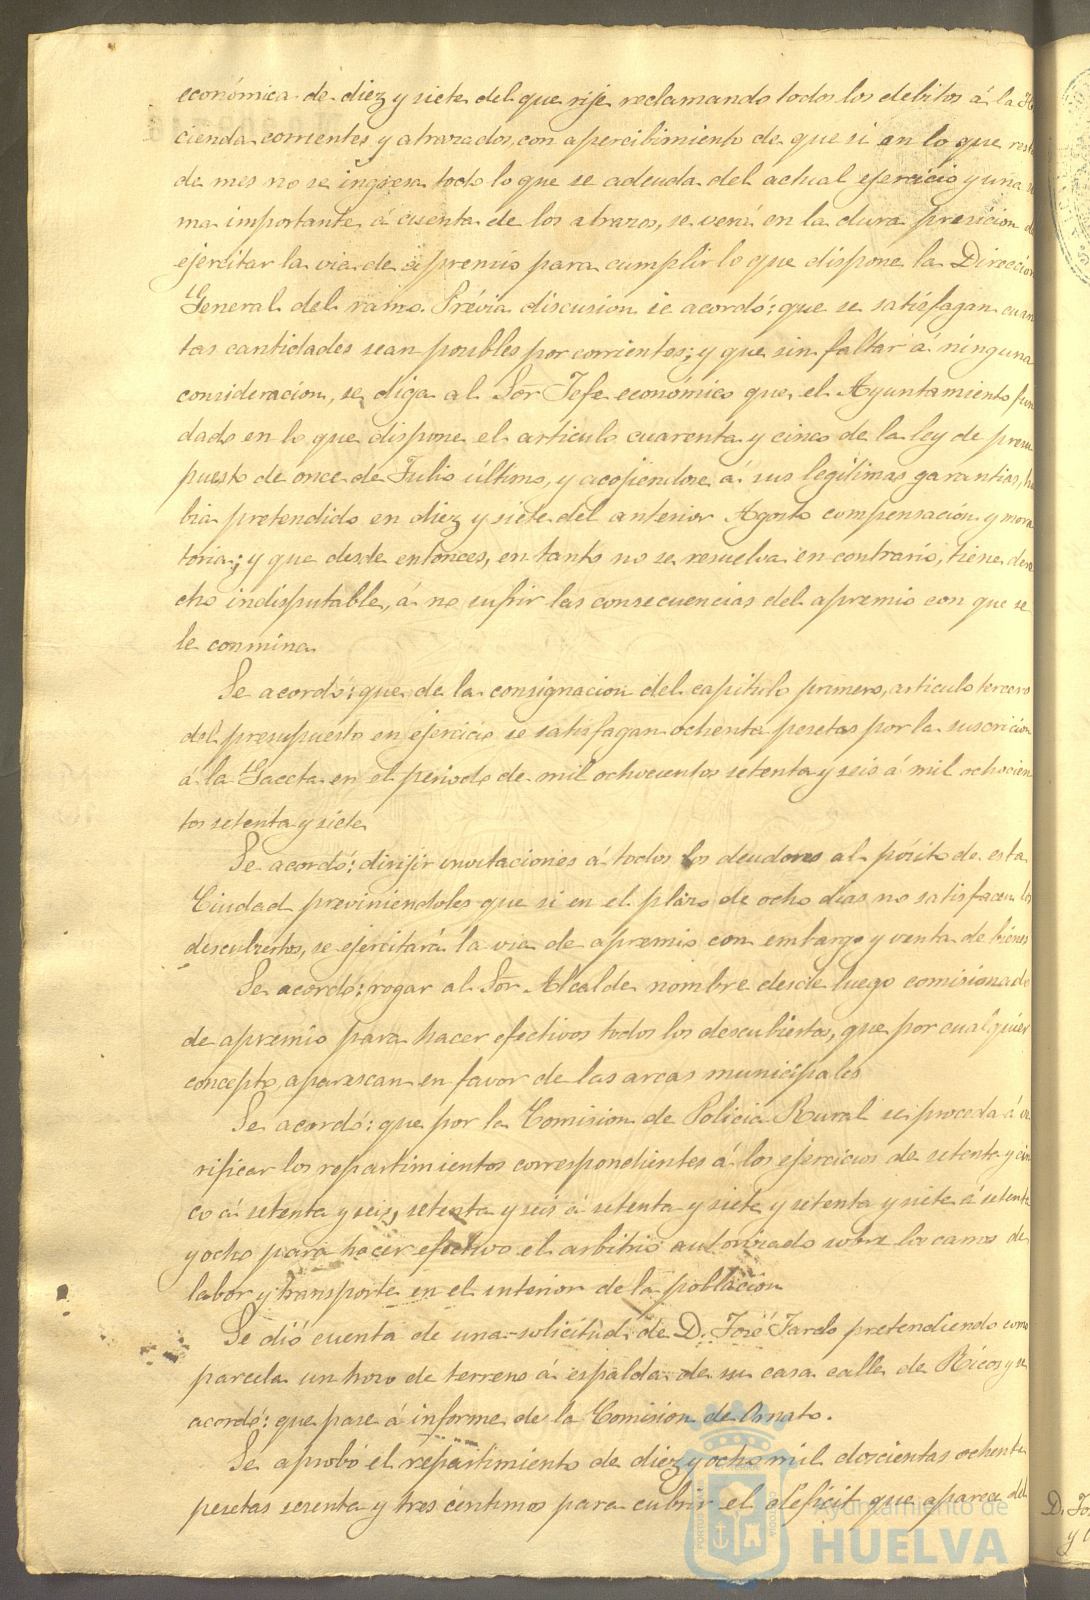 económica de diez y siete del que rije reclamando todos los debitos á la Ha
cienda corrientes y atrazados, con apercibimiento de que si en lo que resta
de mes no se ingresa todo lo que se adeuda del actual ejercicio y una su
ma importante á cuenta de los atrazos, se verá en la dura presicion de
ejercitar la via de apremio para cumplir lo que dispone la Direccion
General del ramo. Prévia discusion se acordó: que se satisfagan cuan
tas cantidades sean posibles por corrientes; y que sin faltar á ninguna
consideracion, se diga al Sor Jefe económico que el Ayuntamiento fun
dado en lo que dispone el articulo cuarenta y cinco de la ley de presu
puesto de once de Julio último, y acojiendose á sus legitimas garantias, ha
bia pretendido en diez y siete del anterior Agosto compensación y mora
toria; y que desde entonces, en tanto no se resuelva en contrario, tiene dere
cho indisputable, á no sufrir las consecuencias del apremio con que se
le conmina.
Se acordó: que de la consignacion del capitulo primero, articulo tercero
del presupuesto en ejercicio se satisfagan ochenta pesetas por la suscricion
á la Gaceta en el periodo de mil ochocientos setenta y seis á mil ochocien
tos setenta y siete
Se acordó: dirijir invitaciones á todos los deudores al pósito de esta
Ciudad previniendoles que si en el plazo de ocho dias no satisfacen los
descubiertos, se ejercitará la via de apremio con embargo y venta de bienes
Se acordó: rogar al Sor Alcalde nombre desde luego comisionado
de apremio para hacer efectivos todos los descubiertos, que por cualquier
concepto, aparescan en favor de las arcas municipales
Se acordó: que por la Comision de Policia Rural se proceda á ve
rificar los repartimientos correspondientes á los ejercicios de setenta y cin
co á setenta y seis, setenta y seis á setenta y siete y setenta y siete á setenta
y ocho para hacer efectivo el arbitrio autorizado sobre los carros de
labor y transporte en el interior de la poblacion
Se dió cuenta de una solicitud de D. José Jardo pretendiendo como
parcela un trozo de terreno á espalda de su casa calle de Ricos y se
acordó: que pase á informe de la Comision de Ornato.
Se aprobó el repartimiento de diez y ocho mil doscientas ochenta
pesetas sesenta y tres céntimos para cubrir el déficit que aparece del
Ayuntamiento de
HUELVA